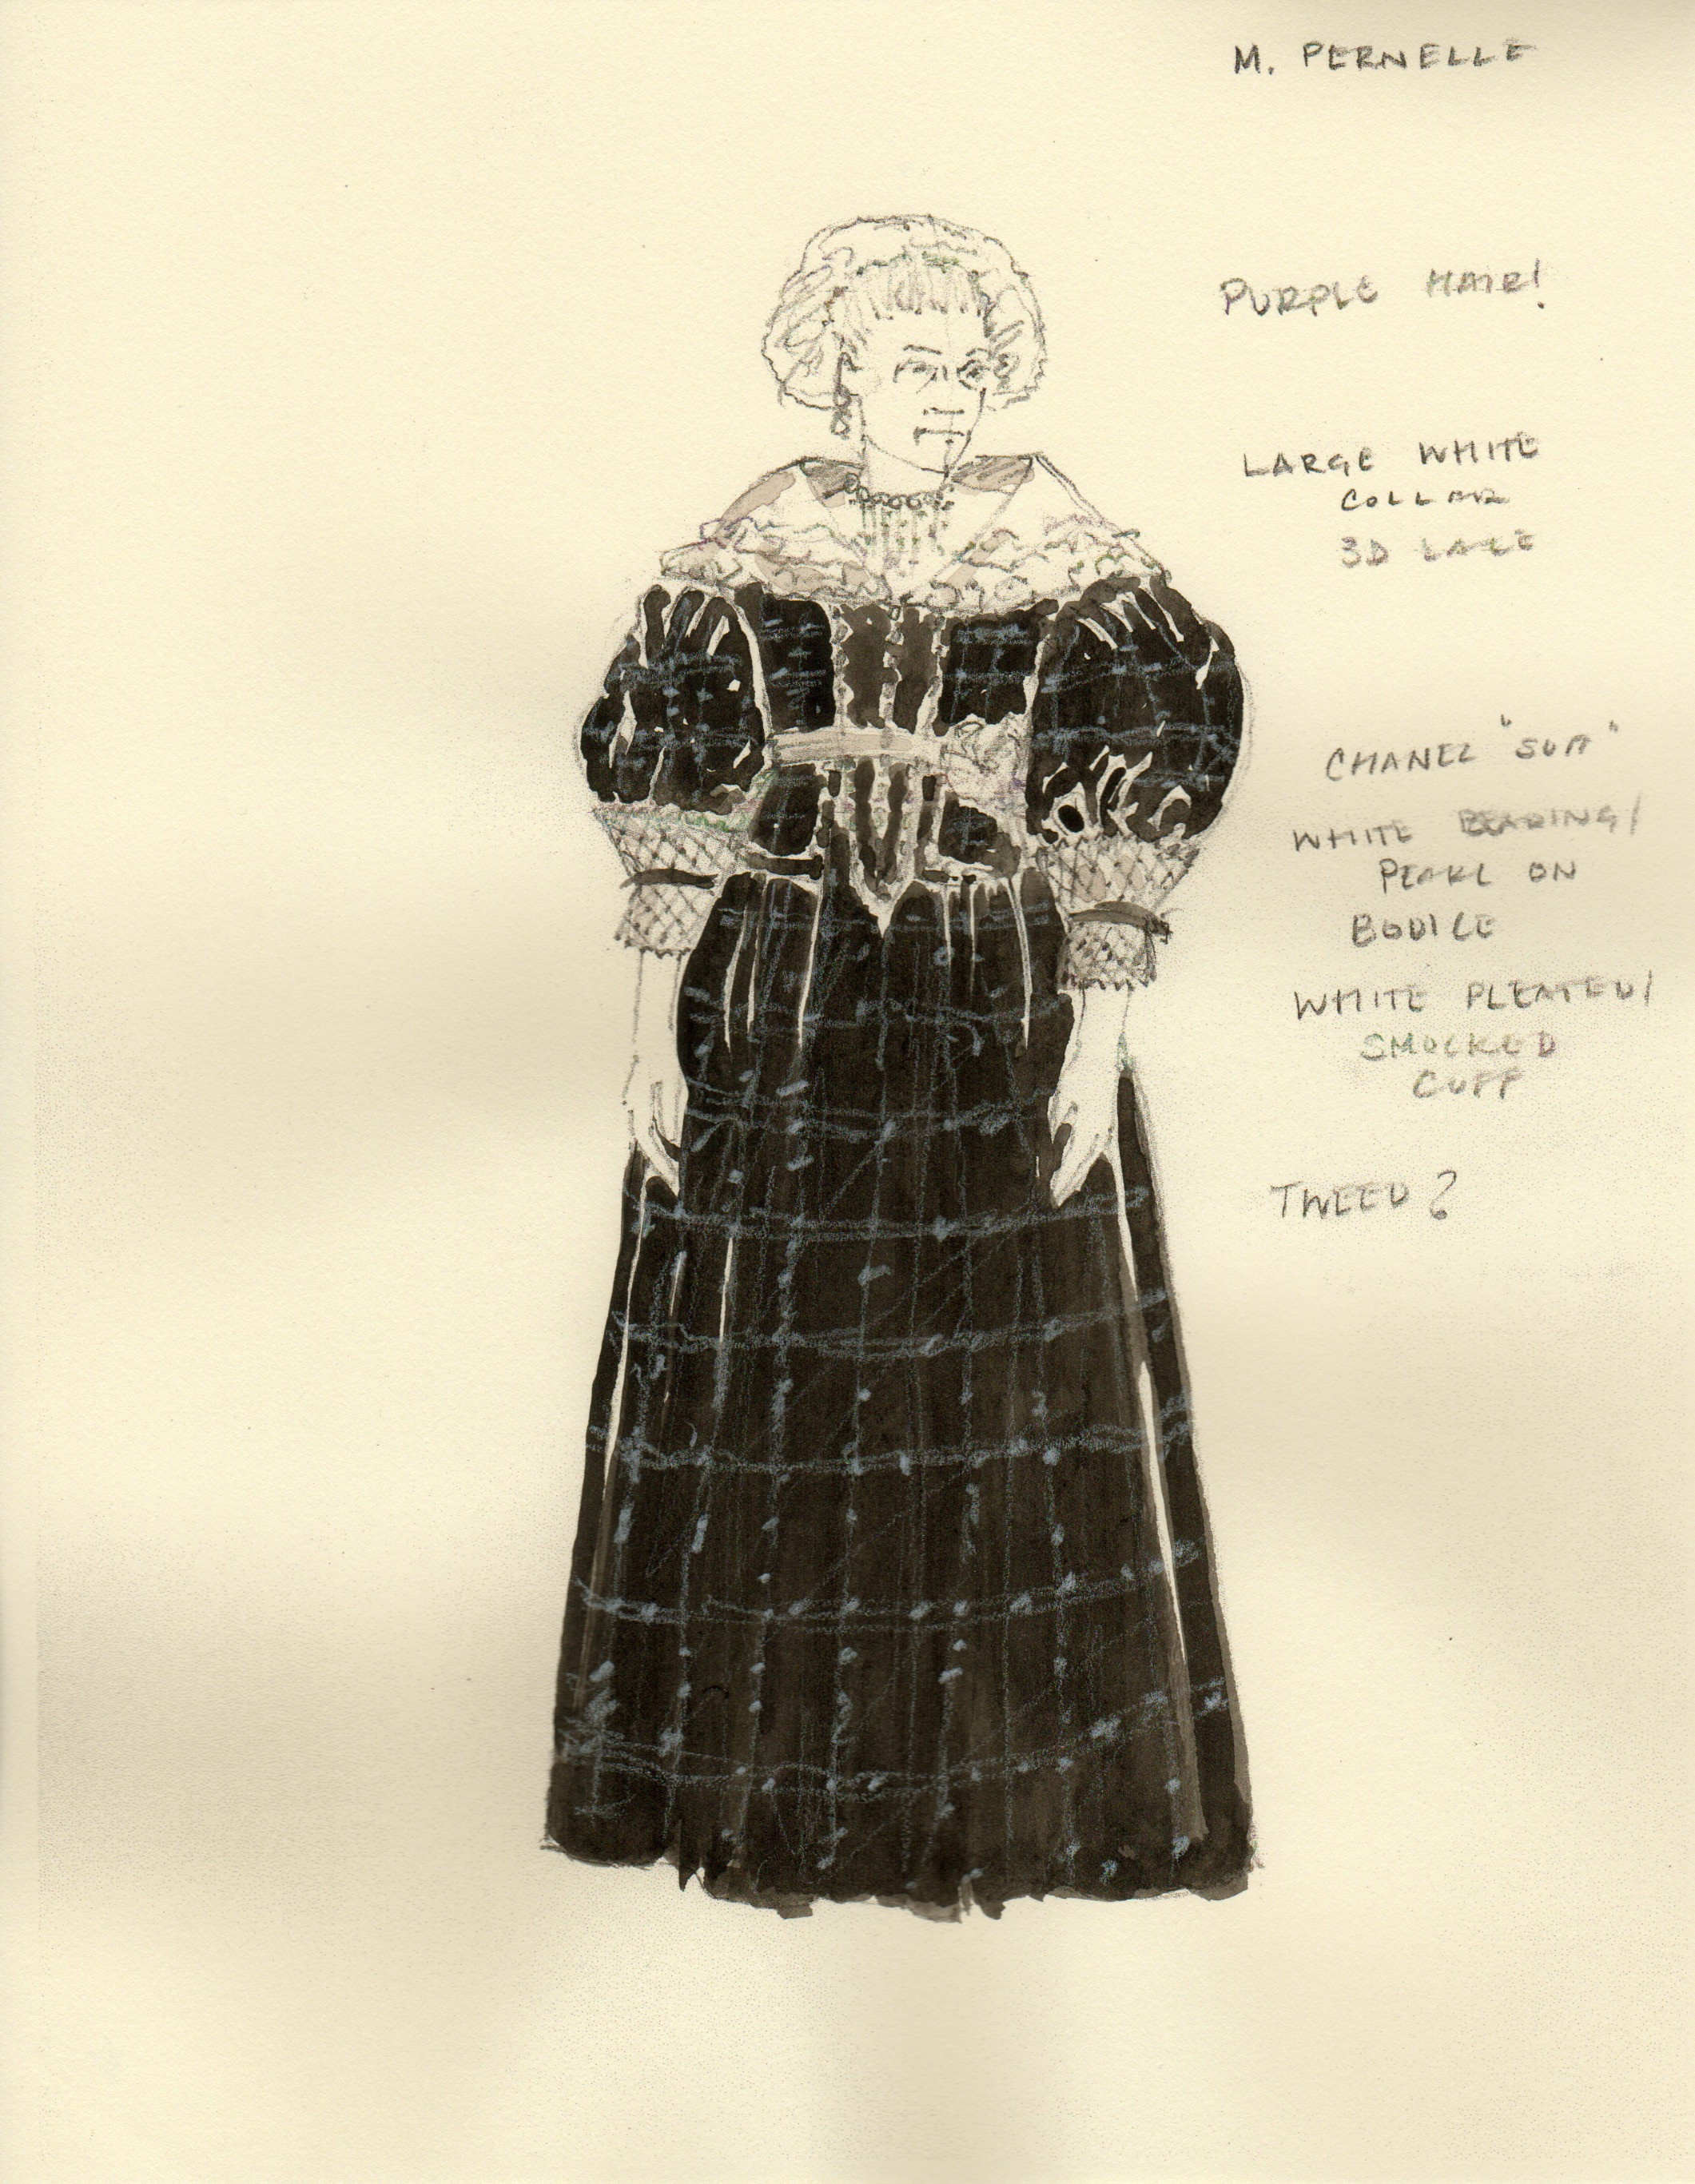 M. PERNELLE
PURPLE HAIR!
LARGE WHITE
COLLAR
3D LACE
CHANEL "SUIT"
WHITE BEADING/
PEARL ON
BODICE
WHITE PLEATED/
SMOCKED
CUFF
TWEED?